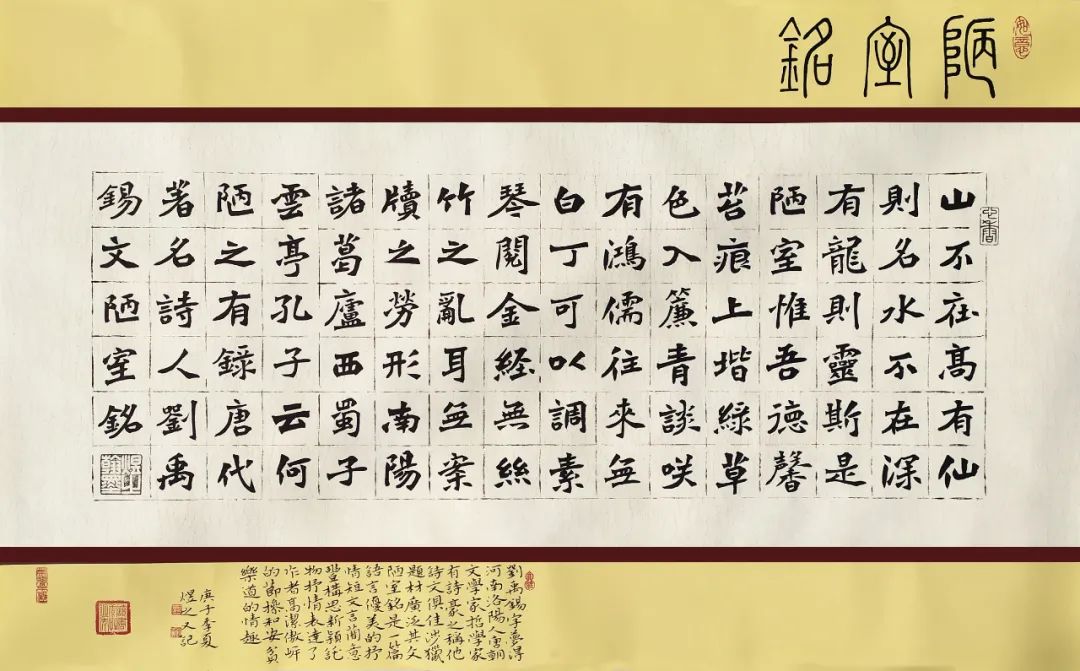 陋室銘
山不在高有仙
則名水不在深
有龍則靈斯是
陋室惟吾德馨
苔痕上堦綠草
色入簾青談咲
有鴻儒往來無
白丁可以調素
琴閱金経無絲
竹之亂耳無案
牘之勞形南陽
諸葛廬西蜀子
雲亭孔子云何
陋之有錄唐代
著名詩人劉禹
錫文陋室銘
劉禹錫字夢得
河南洛陽人唐朝
文學家哲學家
有詩豪之稱他
詩文俱佳涉獵
題材廣泛其文
陋室銘是一篇
語言優美的抒
情短文言簡意
豐構思新穎託
物抒情表達了
作者高潔傲岸
的節操和安貧
樂道的情趣
庚子季夏
煜之又記